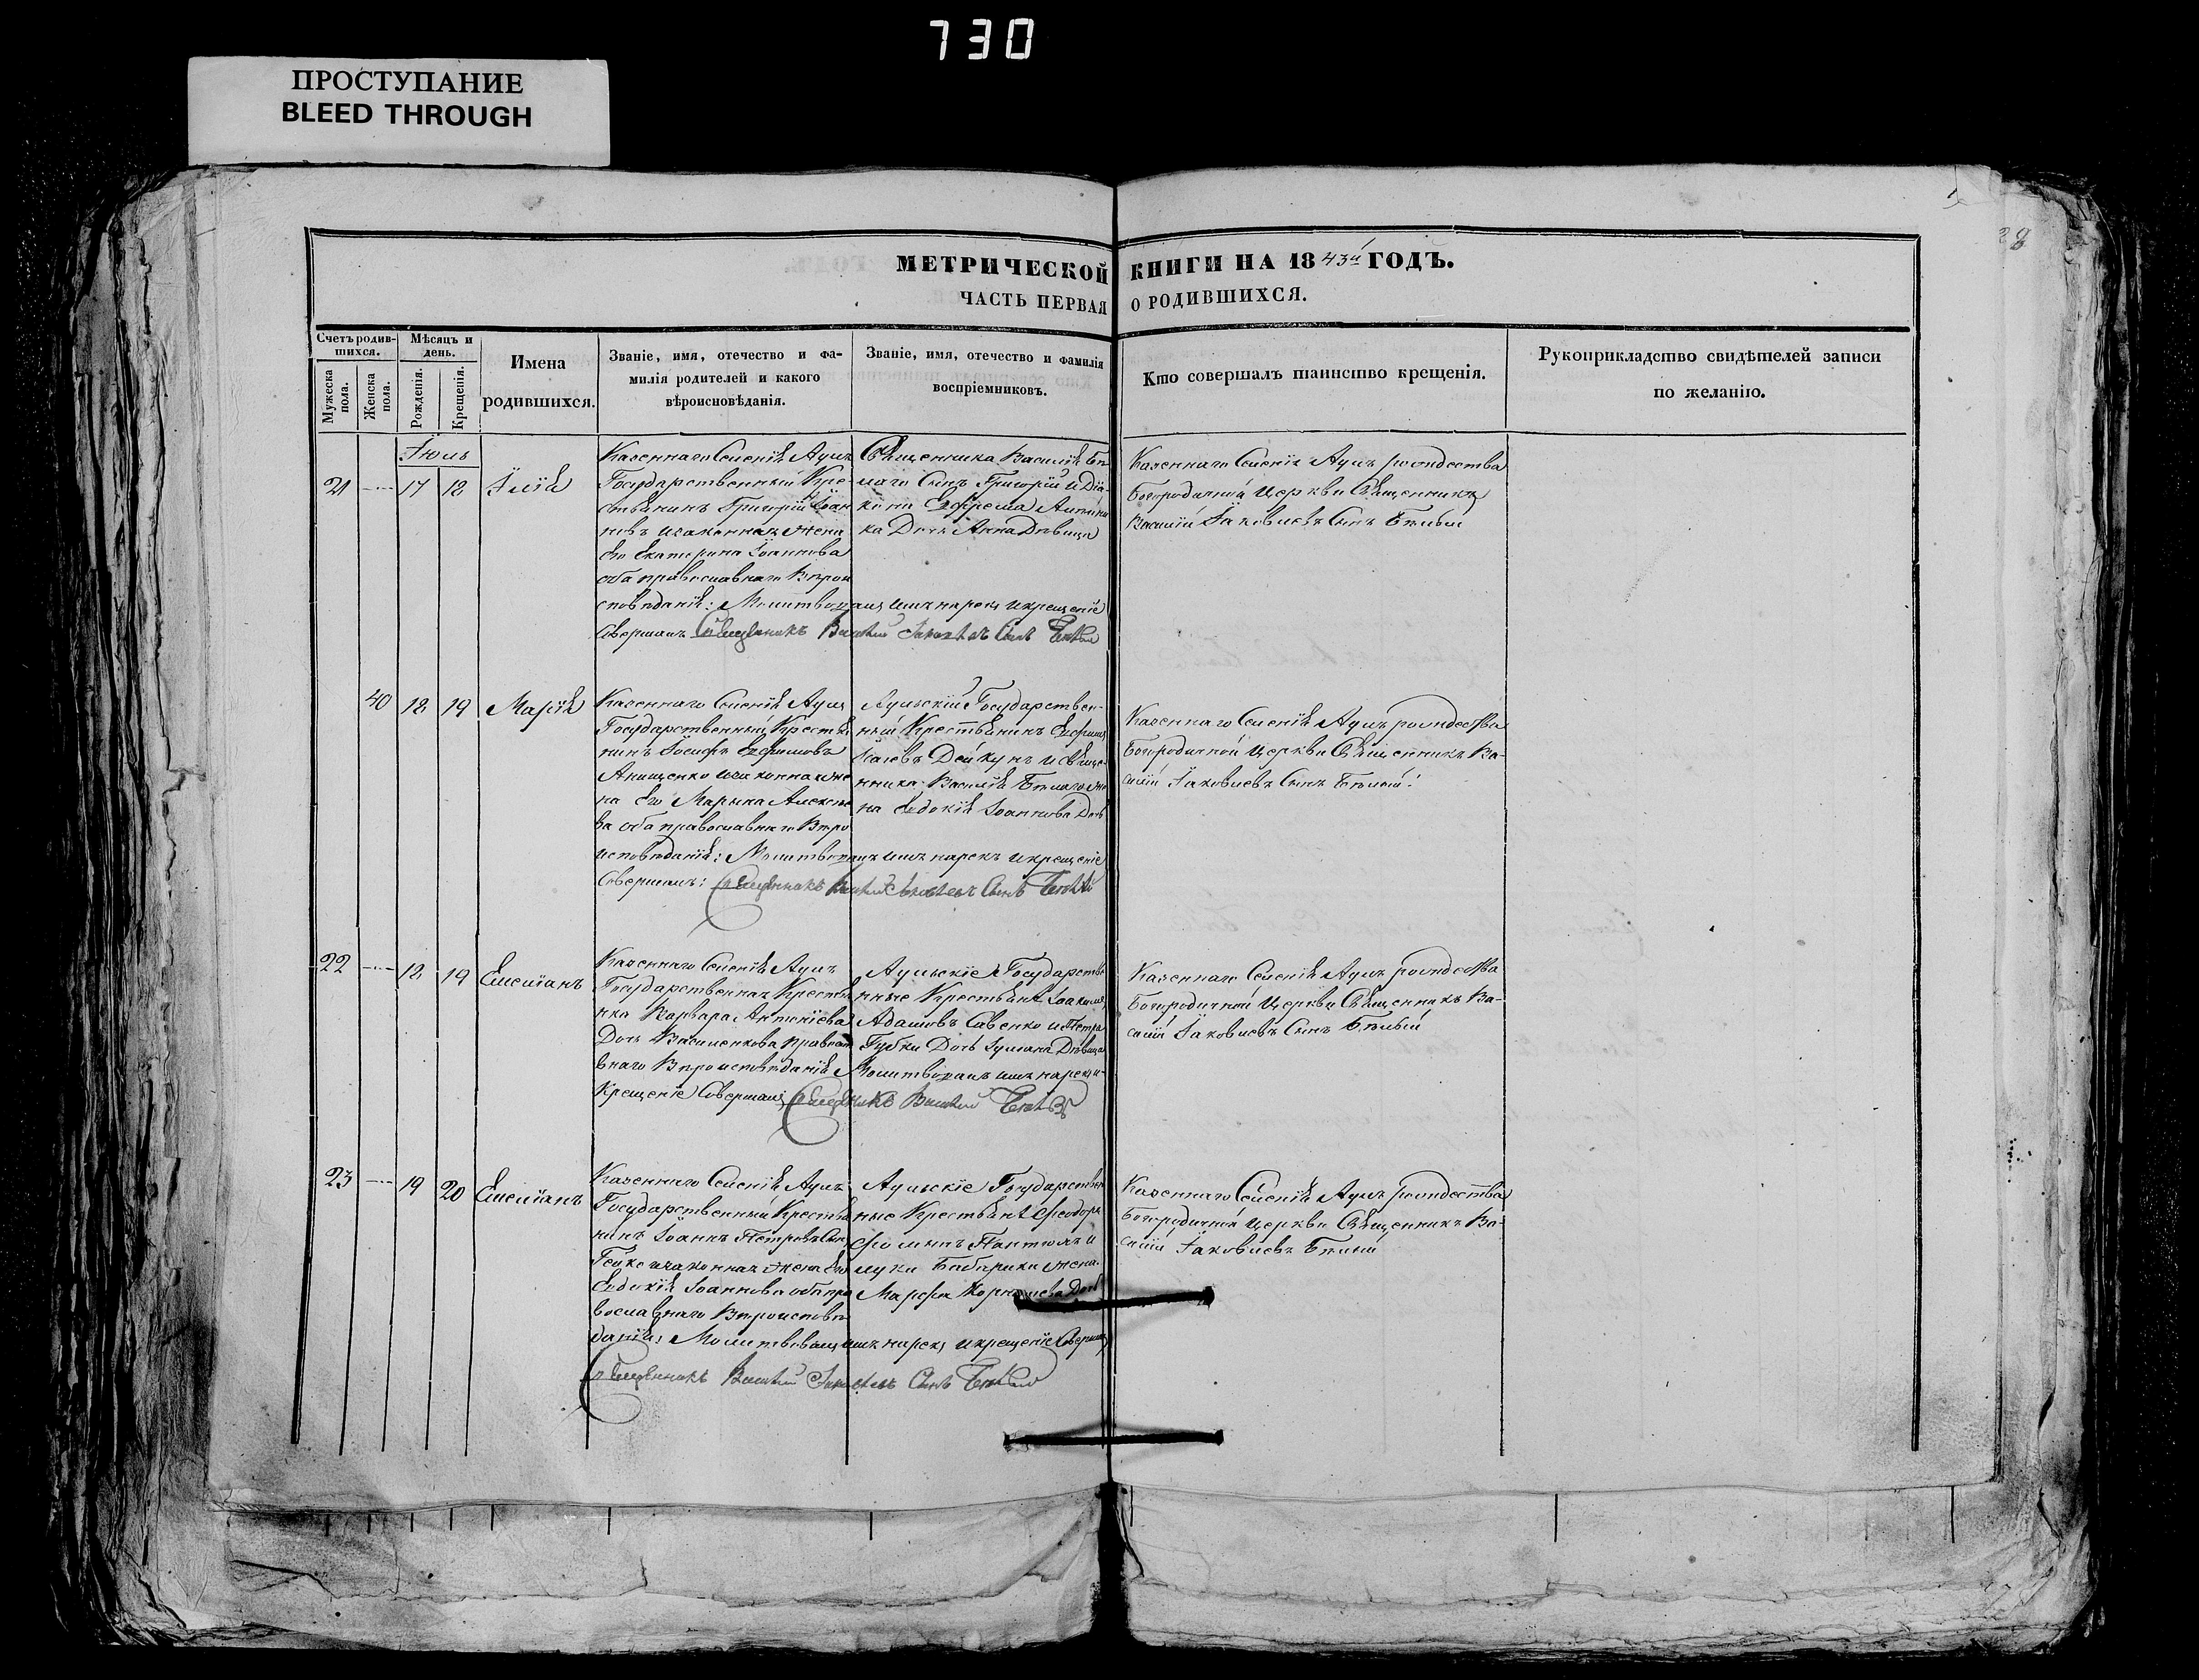 730
ПРОСТУПАНИЕ
BLEED THROUGH
28
МЕТРИЧЕСКОЙ КНИГИ НА 1843й ГОДЪ.
ЧАСТЬ ПЕРВАЯ О РОДИВШИХСЯ.
Счетъ родив-
шихся.
Мужеска пола.
Женска пола.
Мѣсяцъ и
день.
Рожденія.
Крещенія.
Имена
родившихся.
Званіе, имя, отечество и фа-
милія родителей и какого
вѣроисповѣданія.
Званіе, имя, отечество и фамилія
воспріемниковъ.
Кто совершалъ таинство крещенія.
Рукоприкладство свидѣтелей записи
по желанію.
Іюль
21 17 18 Илія
Казеннаго Селенія Аулъ
Государственный Кре-
стьянинъ Григорій
новъ и законная жена
его Екатерина Іоаннова
оба православнаго Вѣрои
сповѣданія: Молитвовалъ имя нарекъ и крещеніе
совершалъ Священникъ Василій Іаковлевъ Сынъ Бѣлый
Священника Василія Бѣ-
лаго Сынъ Григорій и Діа-
кона Ефрема
ка Дочь Анна Дѣвица
Казеннаго Селенія Аулъ рождества
Богородичной Церкви Священникъ
Василій Іаковлевъ Сынъ Бѣлый
40 18 19 Марія
Казеннаго Селенія Аулъ
Государственный Крестья
нинъ Іосифъ Ефимовъ
Анищенко и законная же
на его Марьяна Алексѣе
ва оба православнаго Вѣро
исповѣданія: Молитвовалъ имя нарекъ и крещеніе
Совершалъ: Священникъ Василій Іаковлевъ Сынъ Бѣлый
Аульскій Государствен-
ный Крестьянинъ Ефимъ
Дейкунъ и Свяще-
нника Василія Бѣлаго же
на Евдокія Іоаннова Дочь
Казеннаго Селенія Аулъ рождества
Богородичной Церкви Священникъ Ва-
силій Іаковлевъ Сынъ Бѣлый:
22 18 19 Емеліанъ
Казеннаго Селенія Аулъ
Государственная Крестья
нка Варвара Антоніева
Дочь Василенкова Правосла
внаго Вѣроисповѣданія Молитвовалъ имя нарекъ и
Крещеніе Совершалъ Священникъ Василій Бѣлый
Аульскіе Государстве
нные Крестьяне Іоакимъ
Адамовъ Савенко и Петра
Губки Дочь Іуліана Дѣвица
Казеннаго Селенія Аулъ рождества
Богородичной Церкви Священникъ Ва-
силій Іаковлевъ Сынъ Бѣлый
23 19 20 Емеліанъ
Казеннаго Селенія Аулъ
Государственный Крестья
нинъ Іоаннъ Петровъ Сынъ
и законная жена его
Евдокія Іоаннова оба пра
вославнаго Вѣроисповѣ
данія: Молитвовалъ имя нарекъ и крещеніе Совершалъ
Священникъ Василій Іаковлевъ Сынъ Бѣлый
Аульскіе Государствен
ные Крестьяне Феодоръ
и
луки жена
Марфа Корнилиева Дочь
Казеннаго Селенія Аулъ рождества
Богородичной Церкви Священникъ Ва-
силій Іаковлевъ Бѣлый